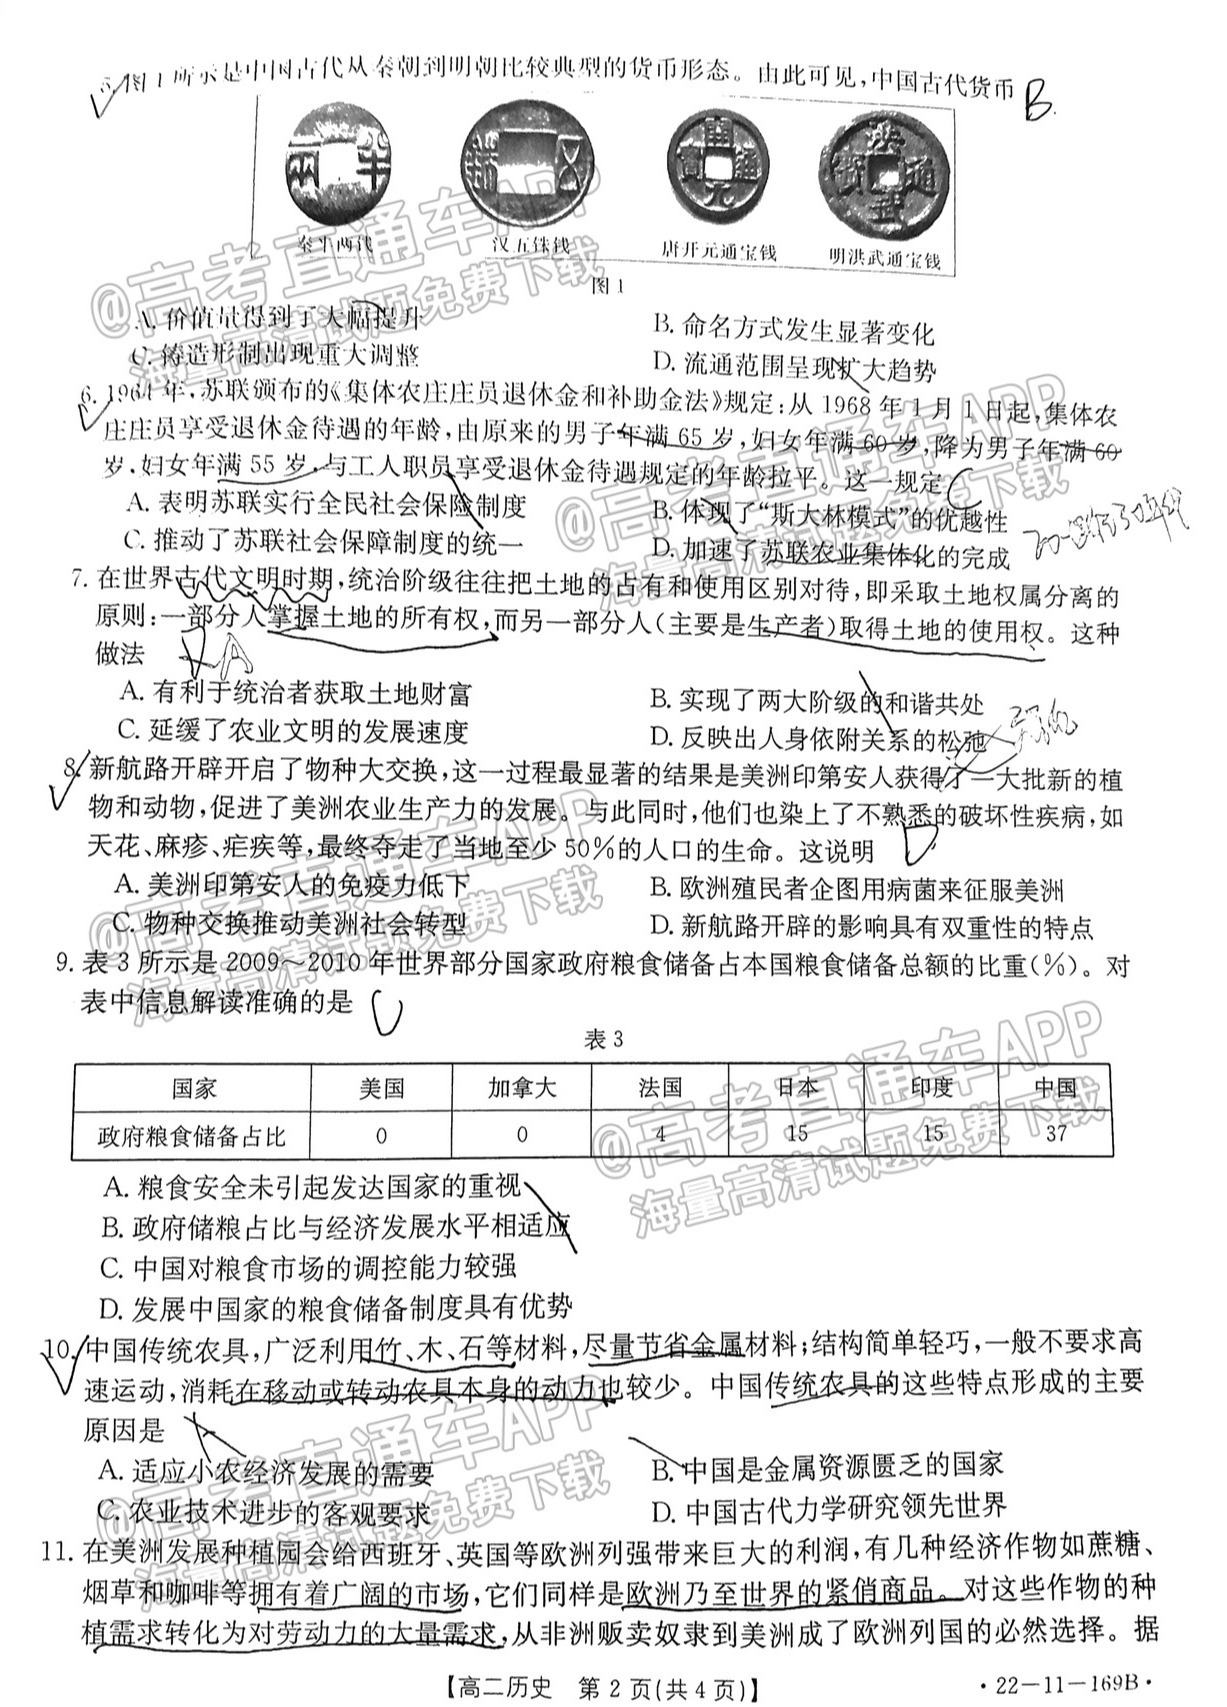 5. 图1所示是中国古代从秦朝到明朝比较典型的货币形态。由此可见,中国古代货币 B.
秦半两钱 汉五铢钱 唐开元通宝钱 明洪武通宝钱
图1
A. 价值量得到了大幅提升 B. 命名方式发生显著变化
C. 铸造形制出现重大调整 D. 流通范围呈现扩大趋势
6. 1964年,苏联颁布的《集体农庄庄员退休金和补助金法》规定:从1968年1月1日起,集体农
庄庄员享受退休金待遇的年龄,由原来的男子年满65岁,妇女年满60岁,降为男子年满60
岁,妇女年满55岁,与工人职员享受退休金待遇规定的年龄拉平。这一规定 C
A. 表明苏联实行全民社会保险制度 B. 体现了“斯大林模式”的优越性
C. 推动了苏联社会保障制度的统一 D. 加速了苏联农业集体化的完成
7. 在世界古代文明时期,统治阶级往往把土地的占有和使用区别对待,即采取土地权属分离的
原则:一部分人掌握土地的所有权,而另一部分人(主要是生产者)取得土地的使用权。这种
做法 A
A. 有利于统治者获取土地财富 B. 实现了两大阶级的和谐共处
C. 延缓了农业文明的发展速度 D. 反映出人身依附关系的松弛
8. 新航路开辟开启了物种大交换,这一过程最显著的结果是美洲印第安人获得了一大批新的植
物和动物,促进了美洲农业生产力的发展。与此同时,他们也染上了不熟悉的破坏性疾病,如
天花、麻疹、疟疾等,最终夺走了当地至少50%的人口的生命。这说明 D
A. 美洲印第安人的免疫力低下 B. 欧洲殖民者企图用病菌来征服美洲
C. 物种交换推动美洲社会转型 D. 新航路开辟的影响具有双重性的特点
9. 表3所示是2009~2010年世界部分国家政府粮食储备占本国粮食储备总额的比重(%)。对
表中信息解读准确的是 C
表3
国家 美国 加拿大 法国 日本 印度 中国
政府粮食储备占比 0 0 4 15 15 37
A. 粮食安全未引起发达国家的重视
B. 政府储粮占比与经济发展水平相适应
C. 中国对粮食市场的调控能力较强
D. 发展中国家的粮食储备制度具有优势
10. 中国传统农具,广泛利用竹、木、石等材料,尽量节省金属材料;结构简单轻巧,一般不要求高
速运动,消耗在移动或转动农具本身的动力也较少。中国传统农具的这些特点形成的主要
原因是 A
A. 适应小农经济发展的需要 B. 中国是金属资源匮乏的国家
C. 农业技术进步的客观要求 D. 中国古代力学研究领先世界
11. 在美洲发展种植园会给西班牙、英国等欧洲列强带来巨大的利润,有几种经济作物如蔗糖、
烟草和咖啡等拥有着广阔的市场,它们同样是欧洲乃至世界的紧俏商品。对这些作物的种
植需求转化为对劳动力的大量需求,从非洲贩卖奴隶到美洲成了欧洲列国的必然选择。据
【高二历史 第2页(共4页)】 ·22-11-169B·
@高考直通车APP
海量高清试题免费下载
@高考直通车APP
海量高清试题免费下载
@高考直通车APP
海量高清试题免费下载
@高考直通车APP
海量高清试题免费下载
@高考直通车APP
海量高清试题免费下载